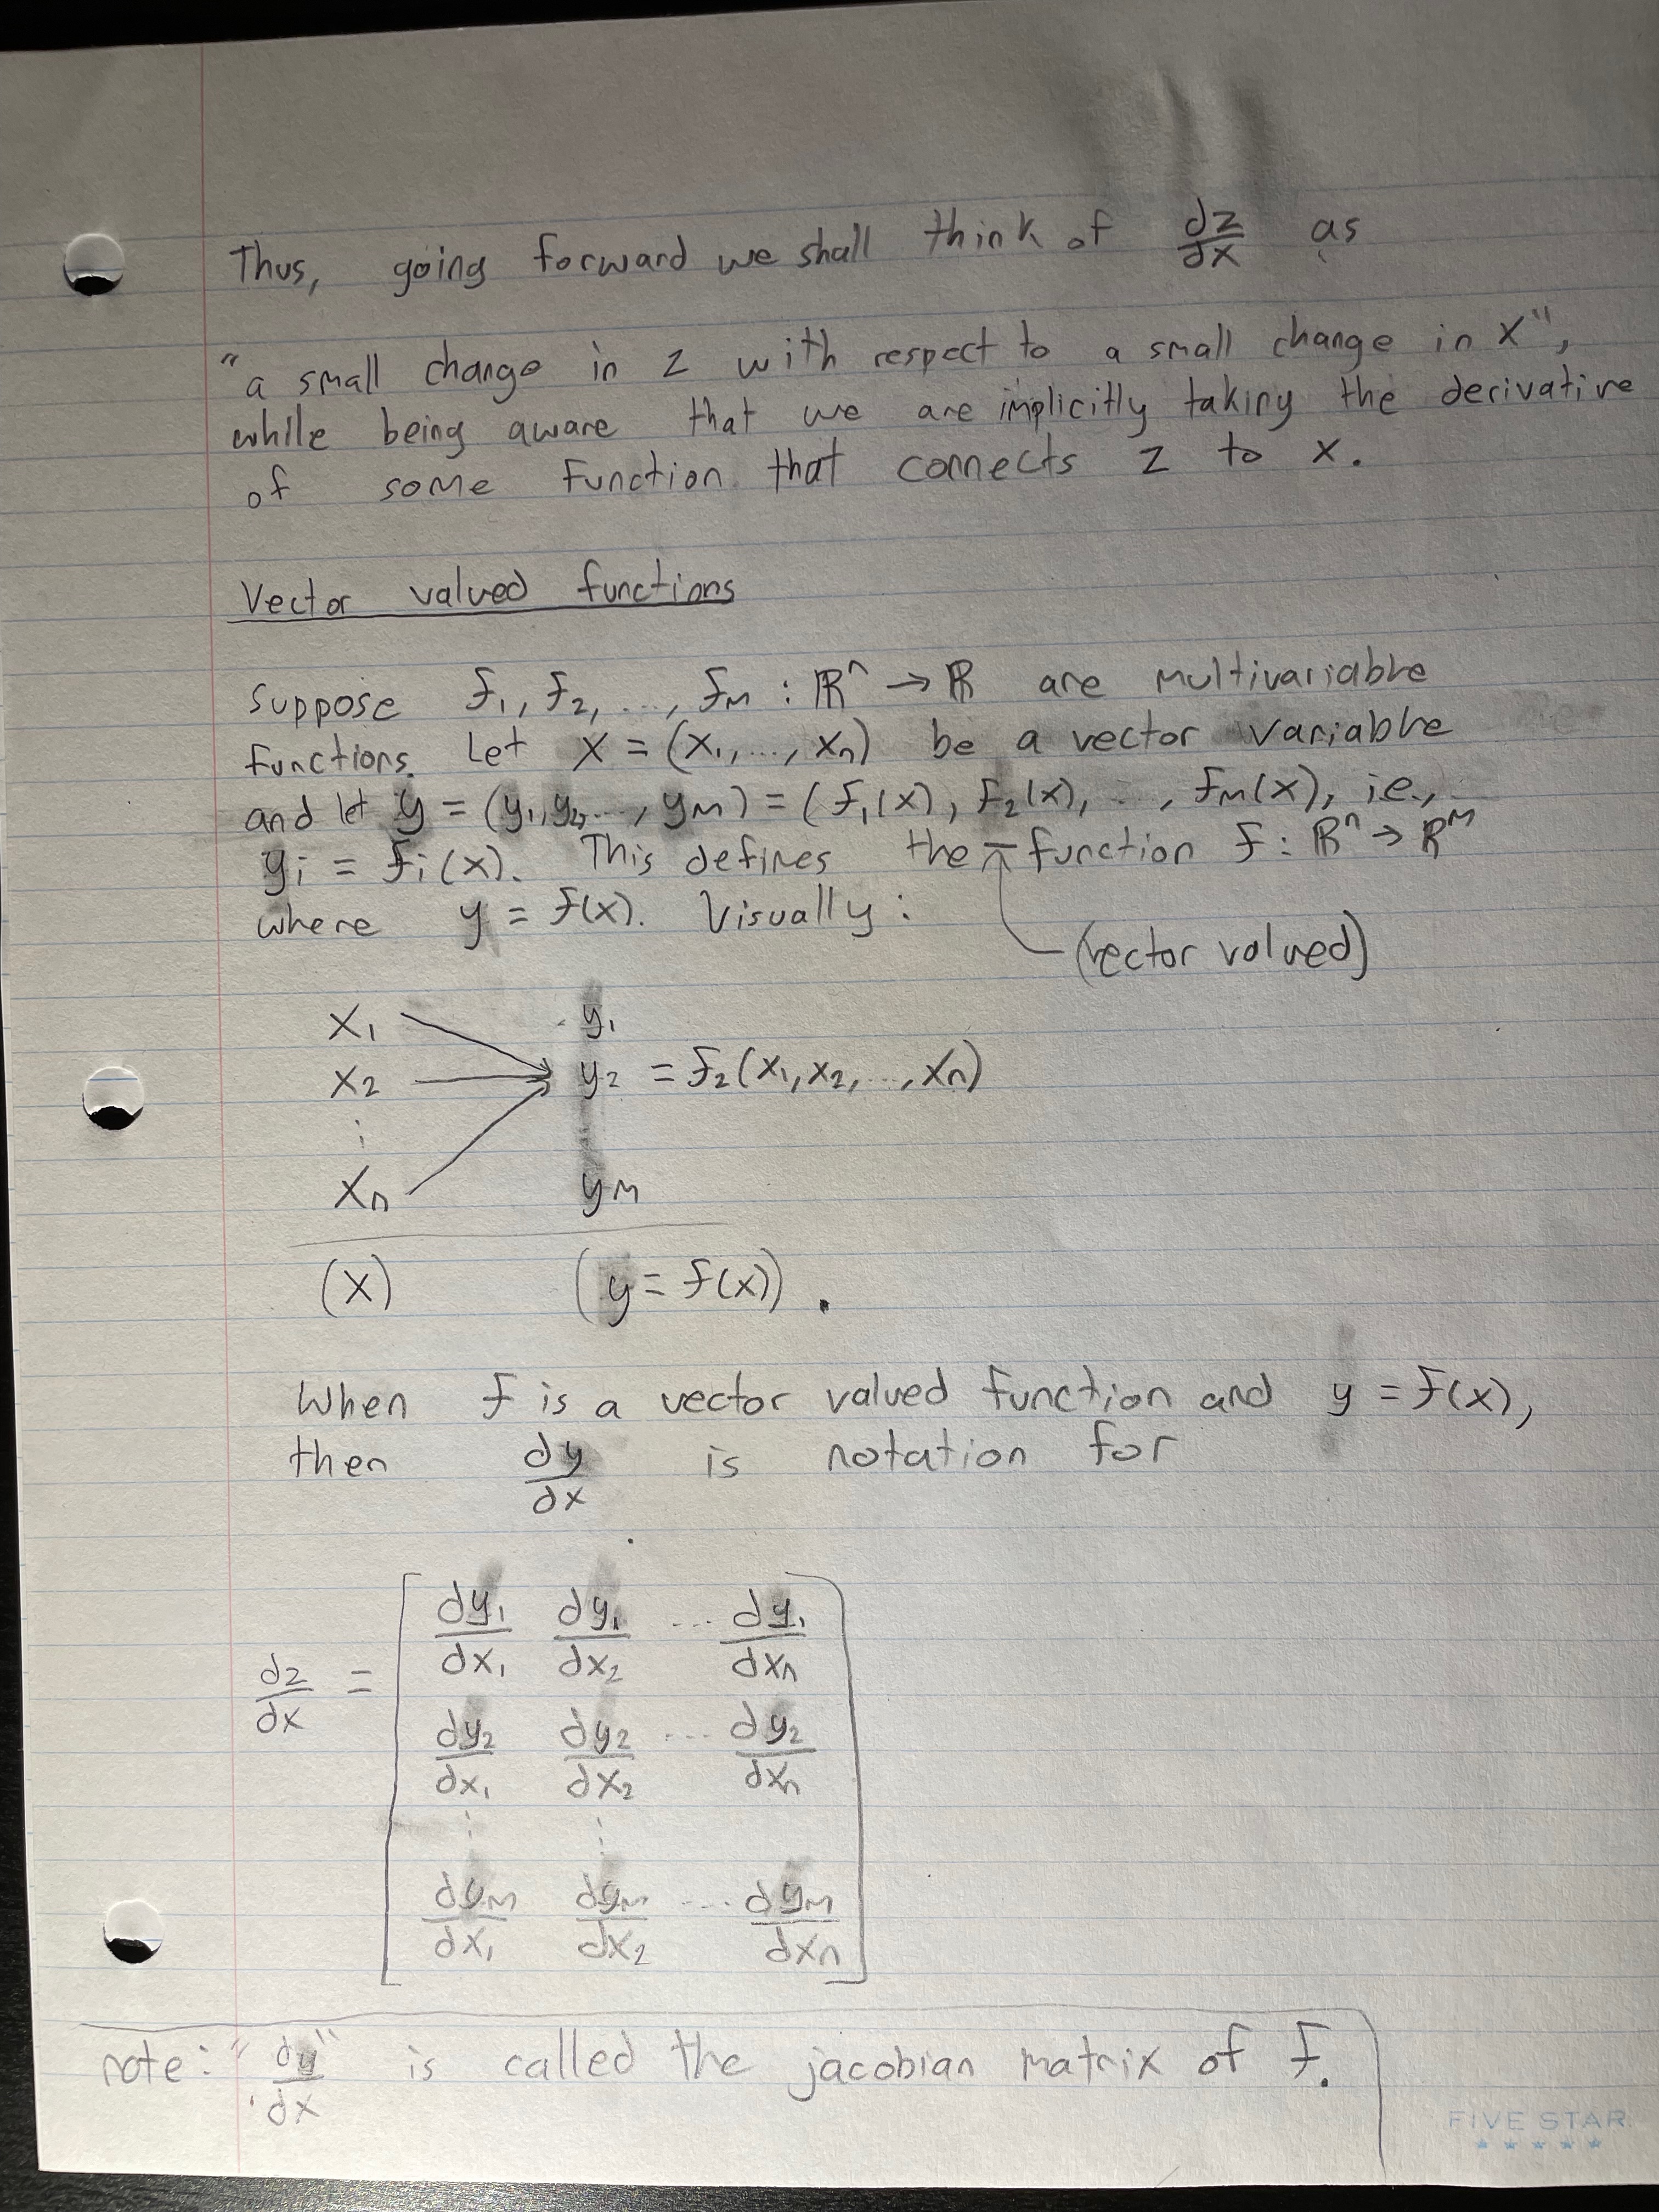 Thus, going forward we shall think of dz/dx as
"a small change in z with respect to a small change in x",
while being aware that we are implicitly taking the derivative
of some function that connects z to x.
Vector valued functions
Suppose f₁, f₂, ..., fₘ : ℝⁿ → ℝ are multivariable
functions. Let x = (x₁, ..., xₙ) be a vector variable
and let y = (y₁, y₂, ..., yₘ) = (f₁(x), f₂(x), ..., fₘ(x), i.e.,
yᵢ = fᵢ(x). This defines the function f : ℝⁿ → ℝᵐ
where y = f(x). Visually:
(vector valued)
x₁ y₁
x₂ y₂ = f₂(x₁, x₂, ..., xₙ)
⋮
xₙ yₘ
(x) (y = f(x)).
When f is a vector valued function and y = f(x),
then dy/dx is notation for
dz/dx = [ dy₁/dx₁ dy₁/dx₂ ... dy₁/dxₙ
dy₂/dx₁ dy₂/dx₂ ... dy₂/dxₙ
⋮ ⋮
dyₘ/dx₁ dyₘ/dx₂ ... dyₘ/dxₙ ]
note: "dy/dx" is called the jacobian matrix of f.
FIVE STAR.